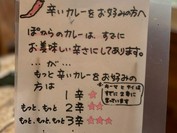 辛いカレーをお好みの方へ
ぽからのカレーは、すでに
お美味しい辛さにしてあります。
…が…
もっと辛いカレーをお好み
の方は
1辛☆
もっと、もっと 2辛☆☆
もっと、もっと、もっと 3辛☆☆☆